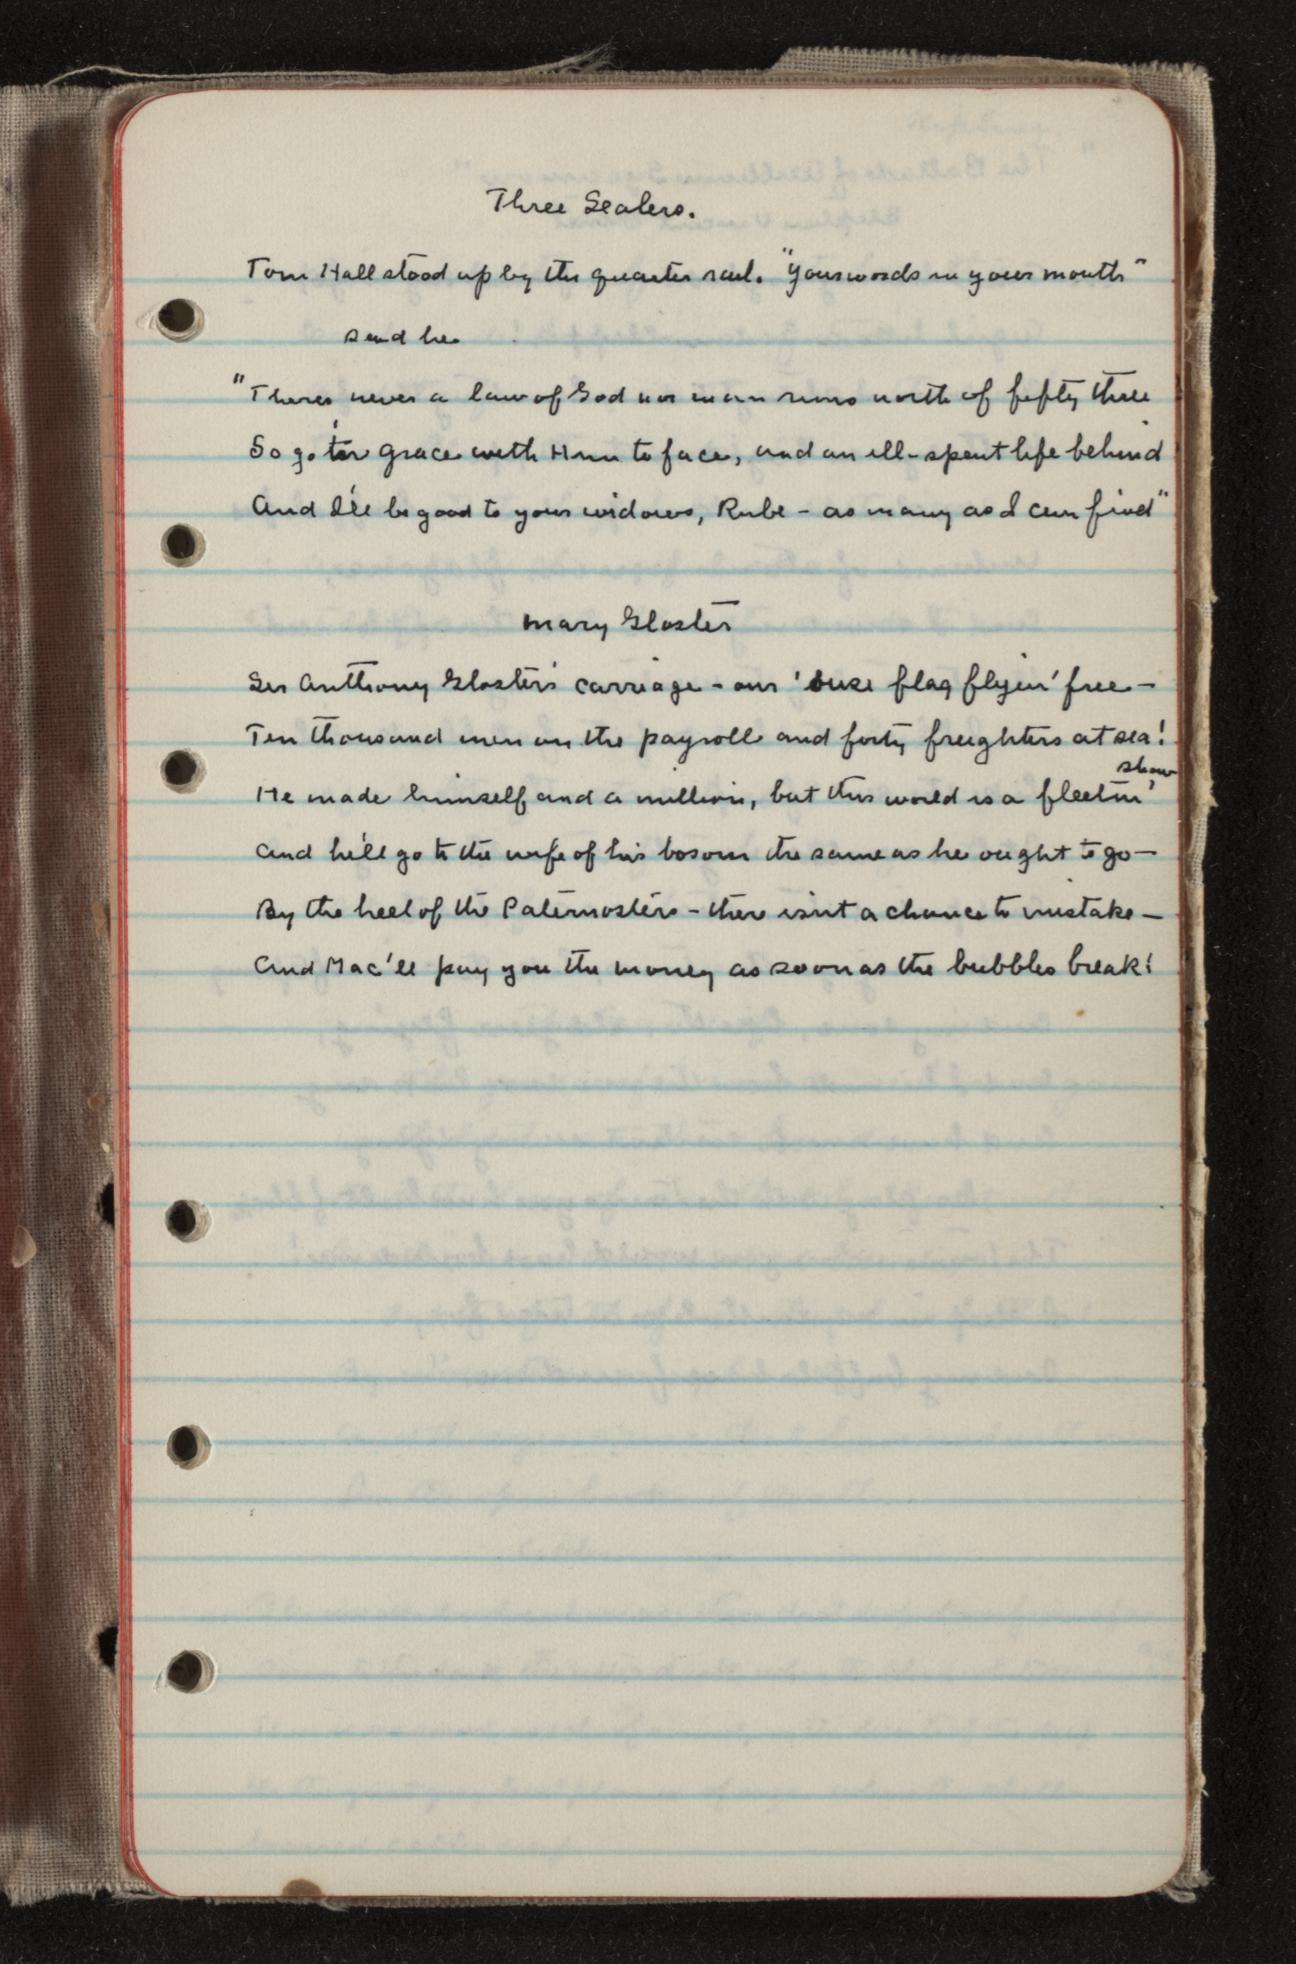 Three Sealers.
Tom Hall stood up by the quarter rail. "Your words in your mouth"
said he
"There's never a law of God nor man runs north of fifty three
So go in grace with Him to face, and an ill-spent life behind
And I'll be good to your widows, Rube - as many as I can find"
Mary Gloster
Sir Anthony Gloster's carriage - our 'ouse flag flyin' free -
Ten thousand men on the payroll and forty freighters at sea!
He made himself and a million, but this world is a fleetin' show
And he'll go to the wife of his bosom the same as he ought to go -
By the heel of the Paternosters - there isn't a chance to mistake -
And Mac'll pay you the money as soon as the bubbles break!